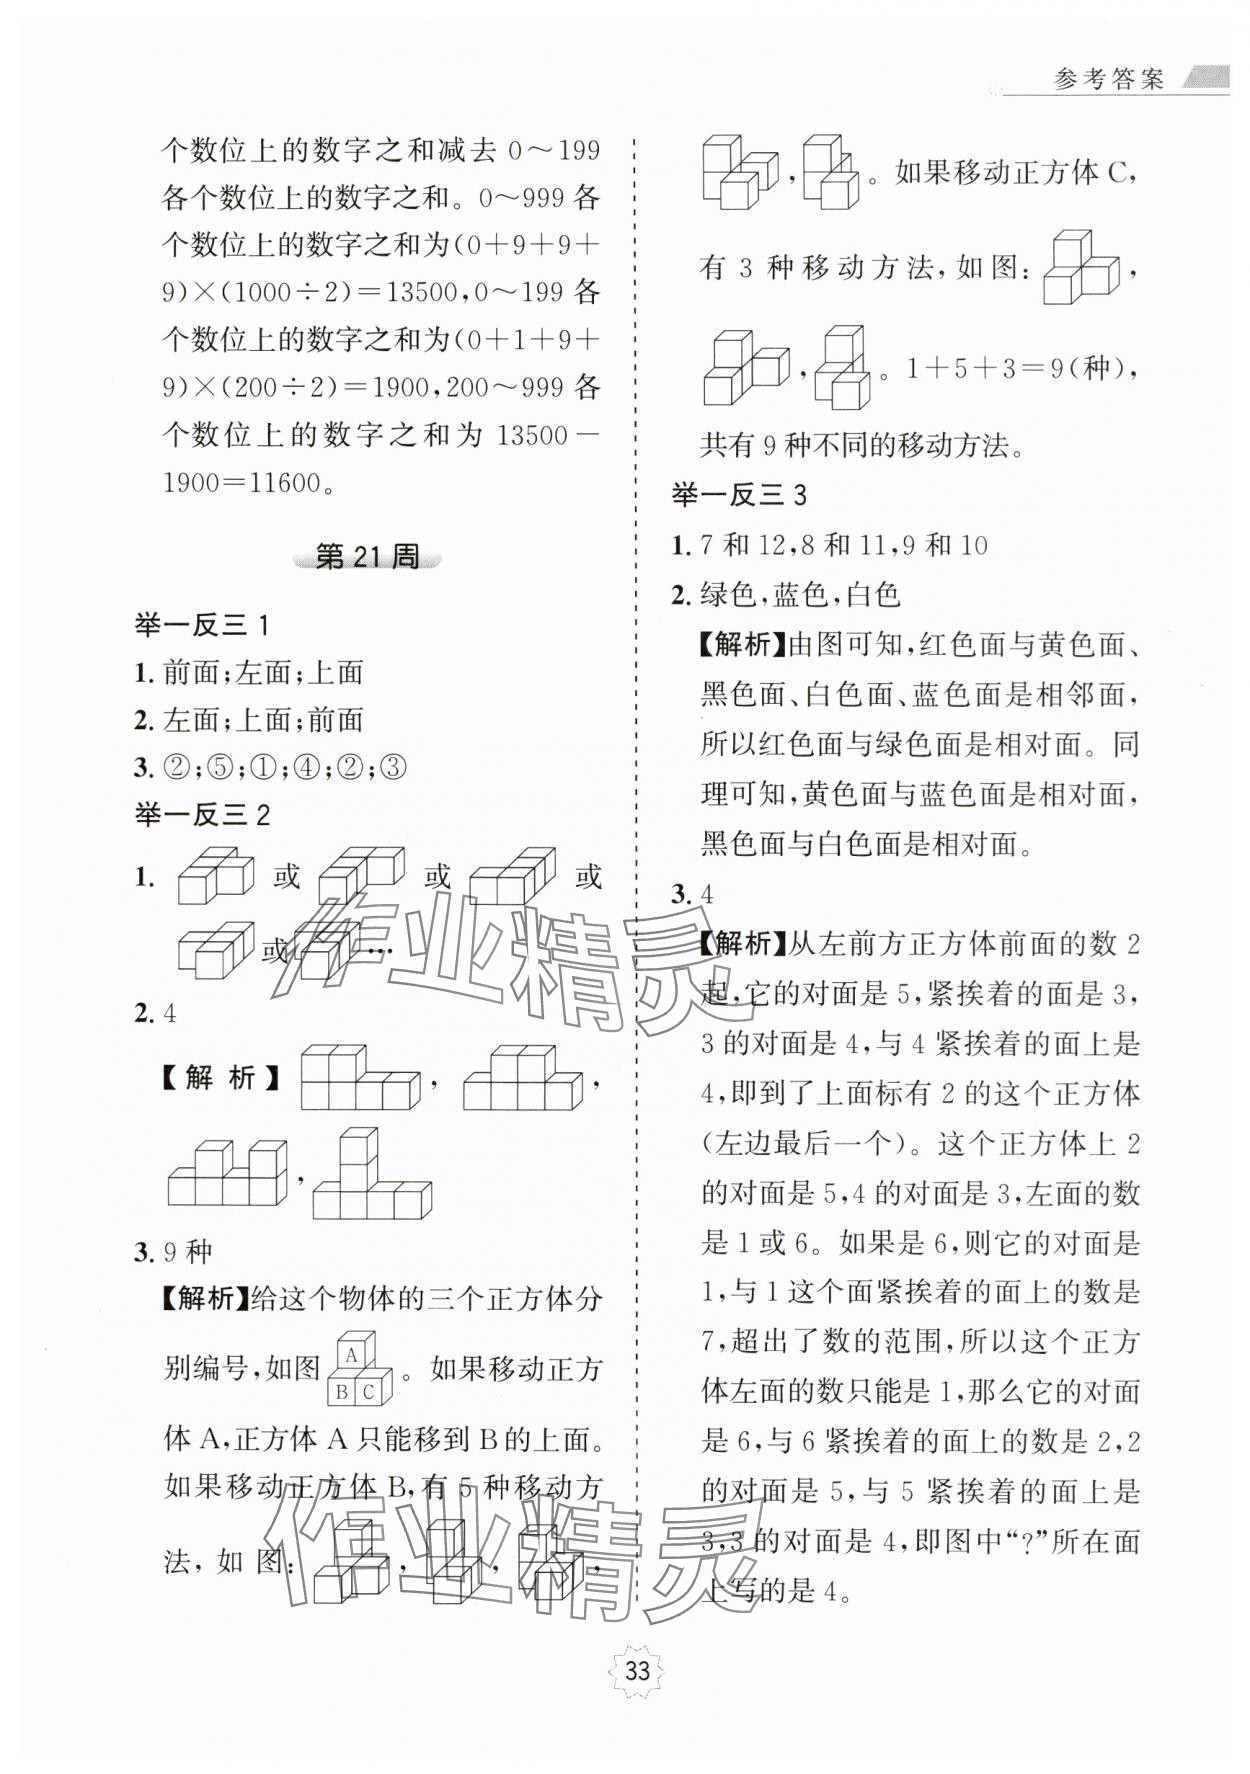 参考答案
个数位上的数字之和减去 0～199
各个数位上的数字之和。0～999 各
个数位上的数字之和为(0＋9＋9＋
9)×(1000÷2)＝13500,0～199 各
个数位上的数字之和为(0＋1＋9＋
9)×(200÷2)＝1900,200～999 各
个数位上的数字之和为 13500－
1900＝11600。
第 21 周
举一反三 1
1. 前面;左面;上面
2. 左面;上面;前面
3. ②;⑤;①;④;②;③
举一反三 2
1. 或 或 或
或 …
2. 4
【解析】 , ,
,
3. 9 种
【解析】给这个物体的三个正方体分
别编号,如图 A B C 。如果移动正方
体 A,正方体 A 只能移到 B 的上面。
如果移动正方体 B,有 5 种移动方
法,如图: , , ,
, 。如果移动正方体 C,
有 3 种移动方法,如图: ,
, 。1＋5＋3＝9(种),
共有 9 种不同的移动方法。
举一反三 3
1. 7 和 12,8 和 11,9 和 10
2. 绿色,蓝色,白色
【解析】由图可知,红色面与黄色面、
黑色面、白色面、蓝色面是相邻面,
所以红色面与绿色面是相对面。同
理可知,黄色面与蓝色面是相对面,
黑色面与白色面是相对面。
3. 4
【解析】从左前方正方体前面的数 2
起,它的对面是 5,紧挨着的面是 3,
3 的对面是 4,与 4 紧挨着的面上是
4,即到了上面标有 2 的这个正方体
(左边最后一个)。这个正方体上 2
的对面是 5,4 的对面是 3,左面的数
是 1 或 6。如果是 6,则它的对面是
1,与 1 这个面紧挨着的面上的数是
7,超出了数的范围,所以这个正方
体左面的数只能是 1,那么它的对面
是 6,与 6 紧挨着的面上的数是 2,2
的对面是 5,与 5 紧挨着的面上是
3,3 的对面是 4,即图中“?”所在面
上写的是 4。
作业精灵
作业精灵
33